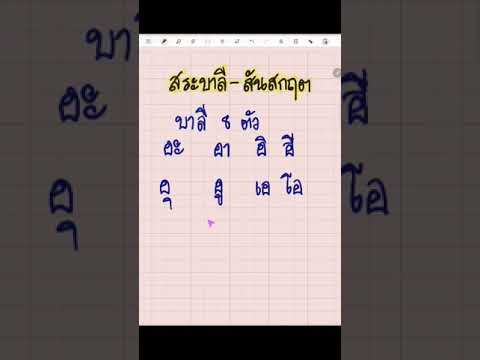 สระบาลี-สันสกฤต
บาลี ๘ ตัว
อะ อา อิ อี
อุ อู เอ โอ